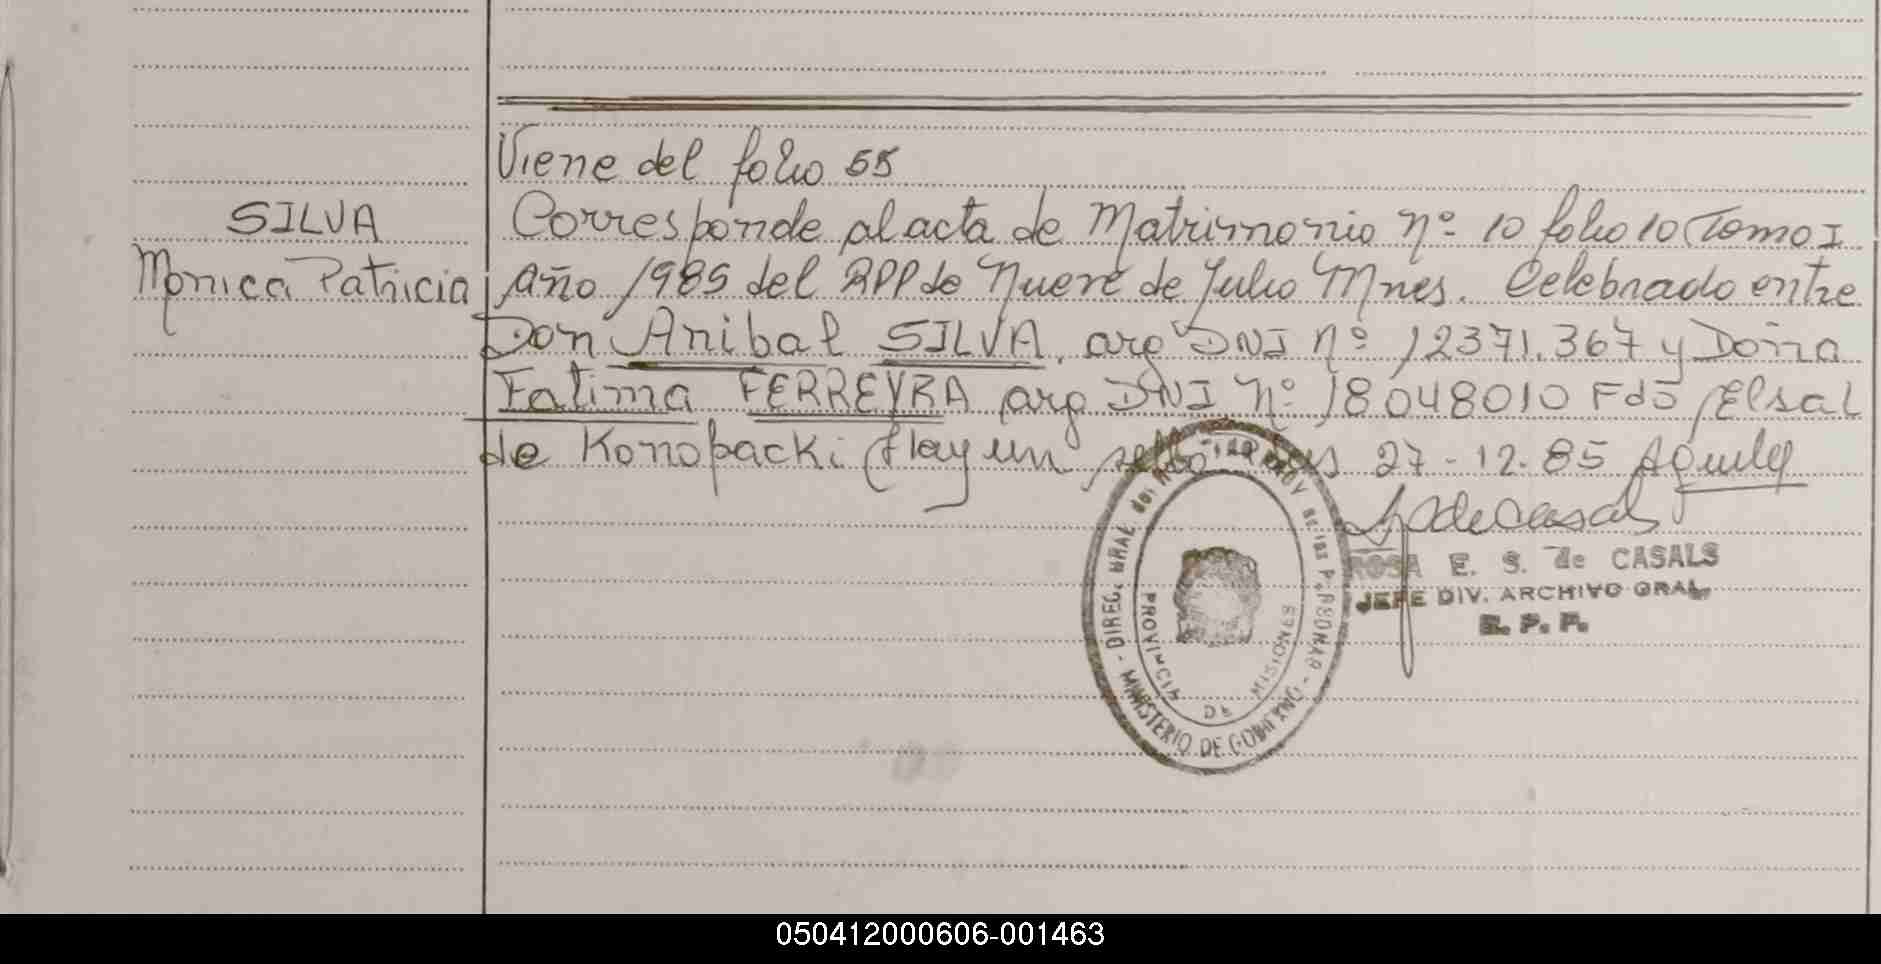 Viene del folio 55
SILVA
Monica Patricia
Corresponde al acta de Matrimonio nº 10 folio 10 Tomo I
año 1985 del RPP de Nueve de Julio Mnes. Celebrado entre
Don Anibal SILVA, arg DNI nº 12371.367 y Doña
Fatima FERREYRA arg DNI nº 18048010 Fdo Elsa
de Konopacki Hay un sello 27-12-85
ROSA E. S. de CASALS
JEFE DIV. ARCHIVO GRAL.
R. P. P.
DIREC. GRAL. del
MINISTERIO DE GOBIERNO
PROVINCIA DE MISIONES
050412000606-001463